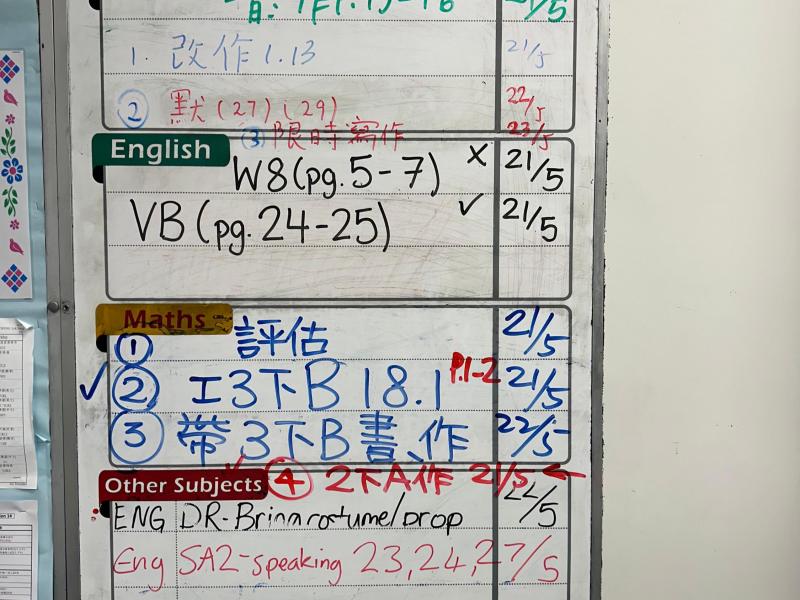 21/5
1. 改作1.13 21/5
② 默(27)(29) 22/5
③ 限時寫作 23/5
English
W8(pg.5-7) x 21/5
VB(pg.24-25) ✓ 21/5
Maths
① 評估 21/5
✓ ② 工3下B 18.1 P.1-2 21/5
③ 帶3下B書、作 22/5
④ 2下A作 21/5 ←
Other Subjects
ENG DR- costume/prop 22/5
Eng SA2-speaking 23,24,27/5